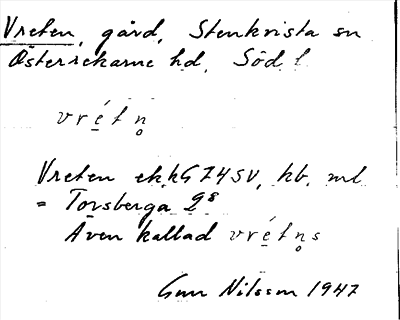 Vreten, gård, Stenkvista sn
Österrekarne hd, Söd. l
vrét̥n̥
Vreten ek. kG74SV, kb, ml
= Torsberga 2⁸
Även kallad vrétn̥s
Gun Nilsson 1947